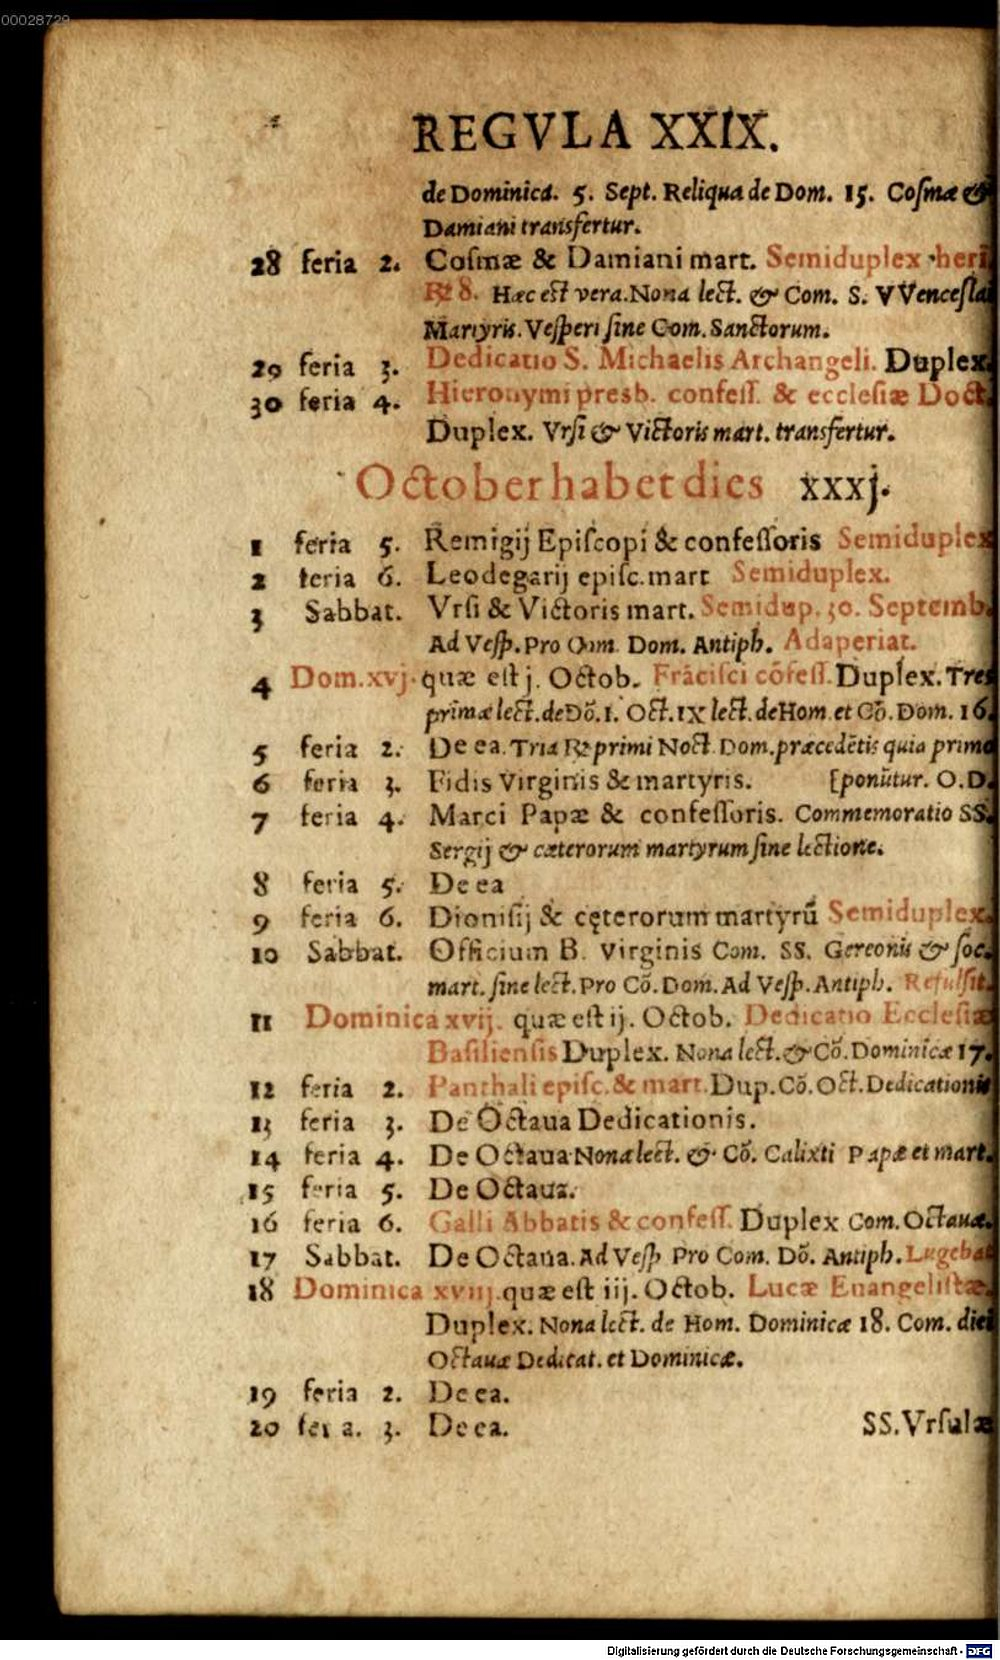 00028729
REGVLA XXIX.
de Dominica. 5. Sept. Reliqua de Dom. 15. Cosmæ &
Damiani transfertur.
28 feria 2. Cosmæ & Damiani mart. Semiduplex heri
℟ 8. Hæc est vera. Nona lect. & Com. S. VVencesla
Martyris. Vesperi sine Com. Sanctorum.
29 feria 3. Dedicatio S. Michaelis Archangeli. Duplex.
30 feria 4. Hieronymi presb. confess. & ecclesiæ Doct.
Duplex. Vrsi & Victoris mart. transfertur.
October habet dies xxxj.
1 feria 5. Remigij Episcopi & confessoris Semiduplex
2 feria 6. Leodegarij episc. mart Semiduplex.
3 Sabbat. Vrsi & Victoris mart. Semidup. 30. Septemb.
Ad Vesp. Pro Com. Dom. Antiph. Adaperiat.
4 Dom. xvj. quæ est j. Octob. Frācisci cōfess. Duplex. Tres
primæ lect. de Dō. 1. Oct. IX lect. de Hom et Cō. Dom. 16.
5 feria 2. De ea. Tria ℟ primi Noct. Dom. præcedētis quia primo
6 feria 3. Fidis Virginis & martyris. [ponūtur. O.D.
7 feria 4. Marci Papæ & confessoris. Commemoratio SS.
Sergij & cæterorum martyrum sine lectione.
8 feria 5. De ea
9 feria 6. Dionisij & cęterorum martyrū Semiduplex.
10 Sabbat. Officium B. Virginis Com. SS. Gereonis & soc.
mart. sine lect. Pro Cō. Dom. Ad Vesp. Antiph. Refulsit.
11 Dominica xvij. quæ est ij. Octob. Dedicatio Ecclesiæ
Basiliensis Duplex. Nona lect. & Cō. Dominicæ 17.
12 feria 2. Panthali episc. & mart. Dup. Cō. Oct. Dedicationis
13 feria 3. De Octaua Dedicationis.
14 feria 4. De Octaua Nona lect. & Cō. Calixti Papæ et mart.
15 feria 5. De Octaua.
16 feria 6. Galli Abbatis & confess. Duplex Com. Octauæ.
17 Sabbat. De Octaua. Ad Vesp Pro Com. Dō. Antiph. Lugebat
18 Dominica xviij. quæ est iij. Octob. Lucæ Euangelistæ.
Duplex. Nona lect. de Hom. Dominicæ 18. Com. diei
Octauæ Dedicat. et Dominicæ.
19 feria 2. De ea.
20 feria. 3. De ea.
SS. Vrsulæ
Digitalisierung gefördert durch die Deutsche Forschungsgemeinschaft - DFG